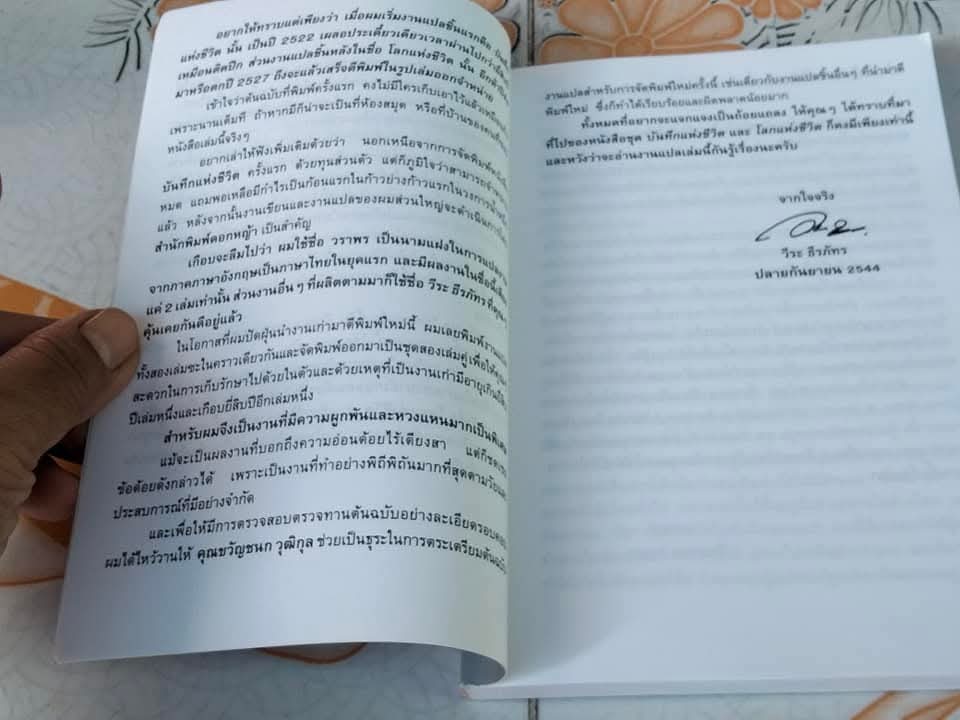 อยากให้ทราบแต่เพียงว่า เมื่อผมเริ่มงานแปลชิ้นแรกคือ
แห่งชีวิต นั้น เป็นปี 2522 เผลอประเดี๋ยวเดียวเวลาผ่านไปกว่า
เหมือนติดปีก ส่วนงานแปลชิ้นหลังในชื่อ โลกแห่งชีวิต นั้น
มาหรือตกปี 2527 ถึงจะแล้วเสร็จตีพิมพ์ในรูปเล่มออกจำหน่าย
เข้าใจว่าต้นฉบับที่พิมพ์ครั้งแรก คงไม่มีใครเก็บเอาไว้แล้ว
เพราะนานเต็มที ถ้าหากมีก็น่าจะเป็นที่ห้องสมุด หรือที่บ้านของคน
หนังสือเล่มนี้จริงๆ
อยากเล่าให้ฟังเพิ่มเติมด้วยว่า นอกเหนือจากการจัดพิมพ์
บันทึกแห่งชีวิต ครั้งแรก ด้วยทุนส่วนตัว แต่ก็ภูมิใจว่าสามารถ
หมด แถมพอเหลือมีกำไรเป็นก้อนแรกในก้าวย่างก้าวแรกในวงการ
แล้ว หลังจากนั้นงานเขียนและงานแปลของผมส่วนใหญ่จะดำเนินการ
สำนักพิมพ์ดอกหญ้า เป็นสำคัญ
เกือบจะลืมไปว่า ผมใช้ชื่อ วราพร เป็นนามแฝงในการแปล
จากภาคภาษาอังกฤษเป็นภาษาไทยในยุคแรก และมีผลงานในชื่อนี้
แค่ 2 เล่มเท่านั้น ส่วนงานอื่นๆ ที่ผลิตตามมาก็ใช้ชื่อ วีระ ธีรภัทร ที่คุณๆ
คุ้นเคยกันดีอยู่แล้ว
ในโอกาสที่ผมปัดฝุ่นนำงานเก่ามาตีพิมพ์ใหม่นี้ ผมเลยพิมพ์งาน
ทั้งสองเล่มซะในคราวเดียวกันและจัดพิมพ์ออกมาเป็นชุดสองเล่มคู่ เพื่อให้
สะดวกในการเก็บรักษาไปด้วยในตัวและด้วยเหตุที่เป็นงานเก่ามีอายุเกิน
ปีเล่มหนึ่งและเกือบยี่สิบปีอีกเล่มหนึ่ง
สำหรับผมจึงเป็นงานที่มีความผูกพันและหวงแหนมากเป็นพิเศษ
แม้จะเป็นผลงานที่บอกถึงความอ่อนด้อยไร้เดียงสา แต่ก็
ข้อด้อยดังกล่าวได้ เพราะเป็นงานที่ทำอย่างพิถีพิถันมากที่สุดตามวัยและ
ประสบการณ์ที่มีอย่างจำกัด
และเพื่อให้มีการตรวจสอบตรวจทานต้นฉบับอย่างละเอียดรอบคอบ
ผมได้ไหว้วานให้ คุณขวัญชนก วุฒิกุล ช่วยเป็นธุระในการตระเตรียมต้นฉบับ
งานแปลสำหรับการจัดพิมพ์ใหม่ครั้งนี้ เช่นเดียวกับงานแปลชิ้นอื่นๆ ที่นำมาตี
พิมพ์ใหม่ ซึ่งก็ทำได้เรียบร้อยและผิดพลาดน้อยมาก
ทั้งหมดที่อยากจะแจกแจงเป็นถ้อยแถลง ให้คุณๆ ได้ทราบที่มา
ที่ไปของหนังสือชุด บันทึกแห่งชีวิต และ โลกแห่งชีวิต ก็คงมีเพียงเท่านี้
และหวังว่าจะอ่านงานแปลเล่มนี้กันรู้เรื่องนะครับ
จากใจจริง
วีระ ธีรภัทร
ปลายกันยายน 2544